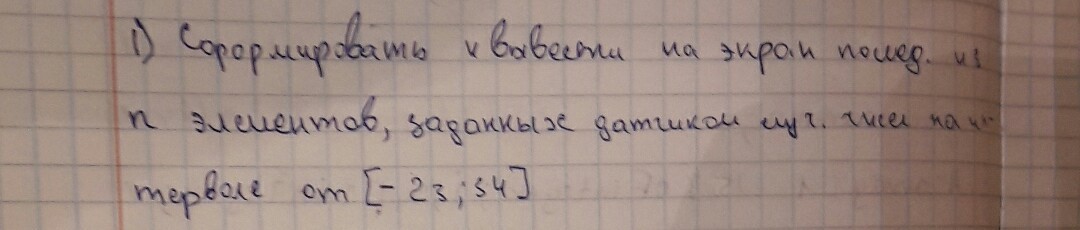 1) Сформировать и вывести на экран послед. из
n элементов, заданных датчиком случ. чисел на ин-
тервале от [-23;34]